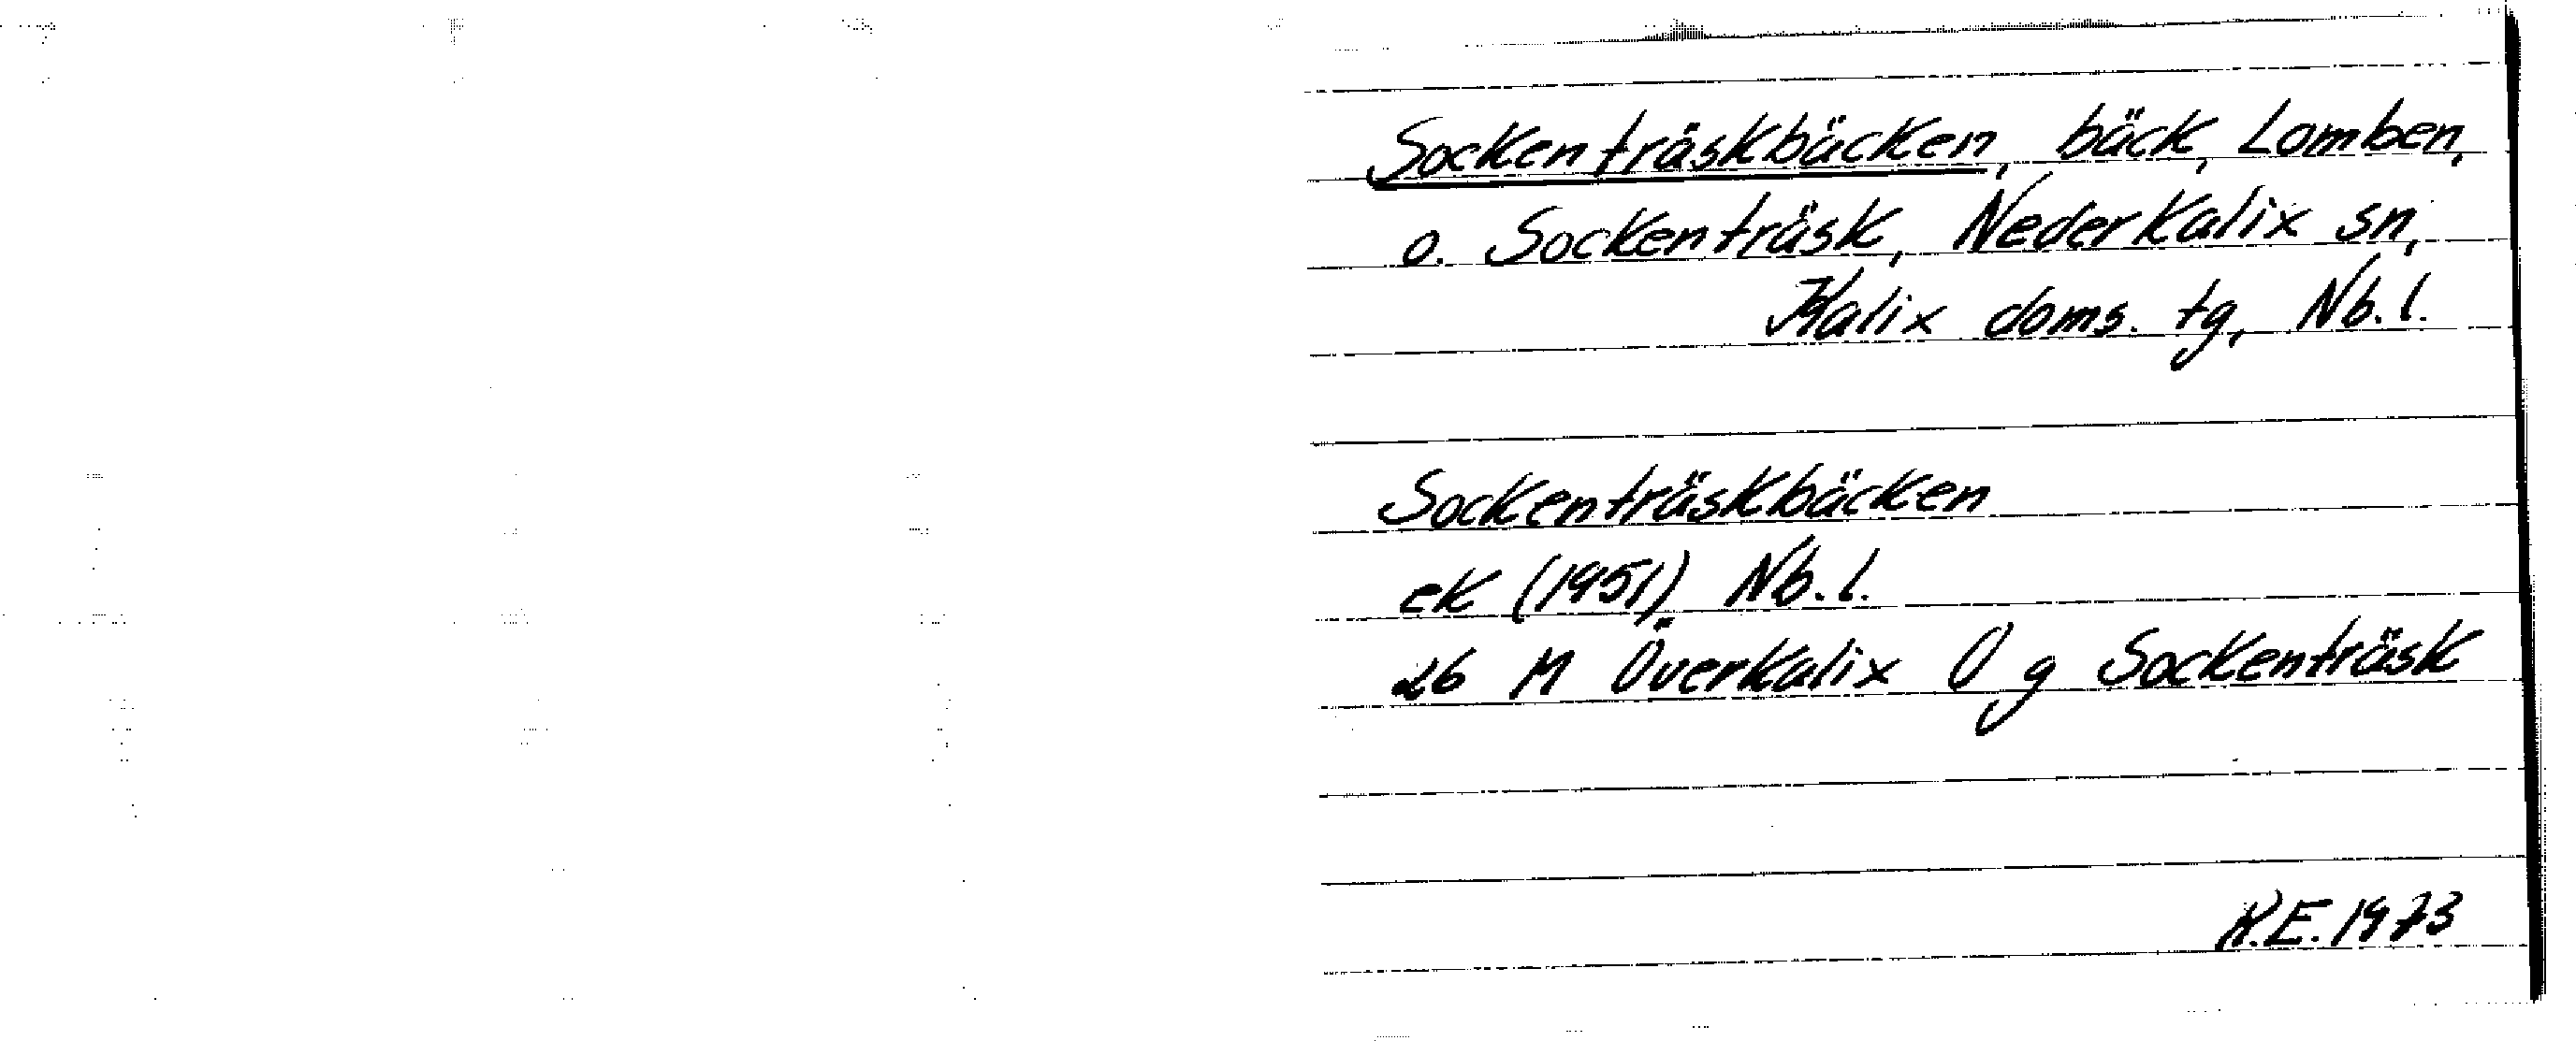 Sockenträskbäcken, bäck, Lomben,
o. Sockenträsk, Nederkalix sn,
Kalix doms. tg, Nb.l.
Sockenträskbäcken
ek (1951) Nb.l.
26 M Överkalix Ö g Sockenträsk
K.E. 1973